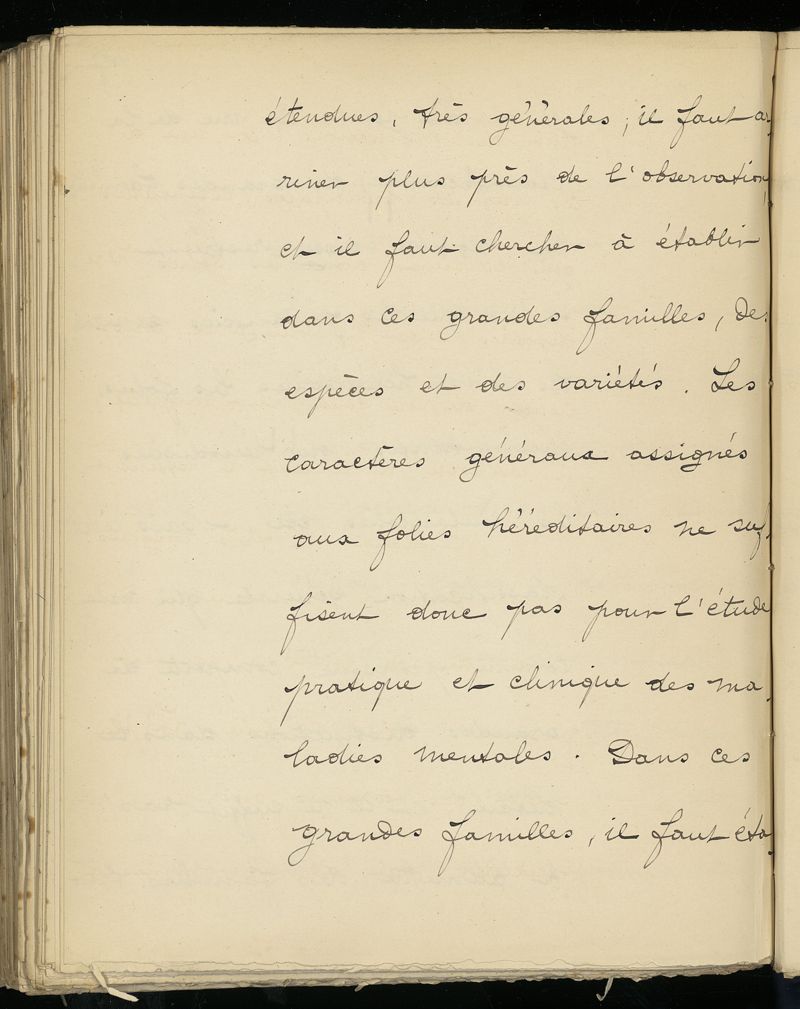 étendues, très générales ; il faut ar
river plus près de l'observation,
et il faut chercher à établir
dans ces grandes familles, des
espèces et des variétés. Les
caractères généraux assignés
aux folies héréditaires ne suf-
fisent donc pas pour l'étude
pratique et clinique des ma-
ladies mentales. Dans ces
grandes familles, il faut éta